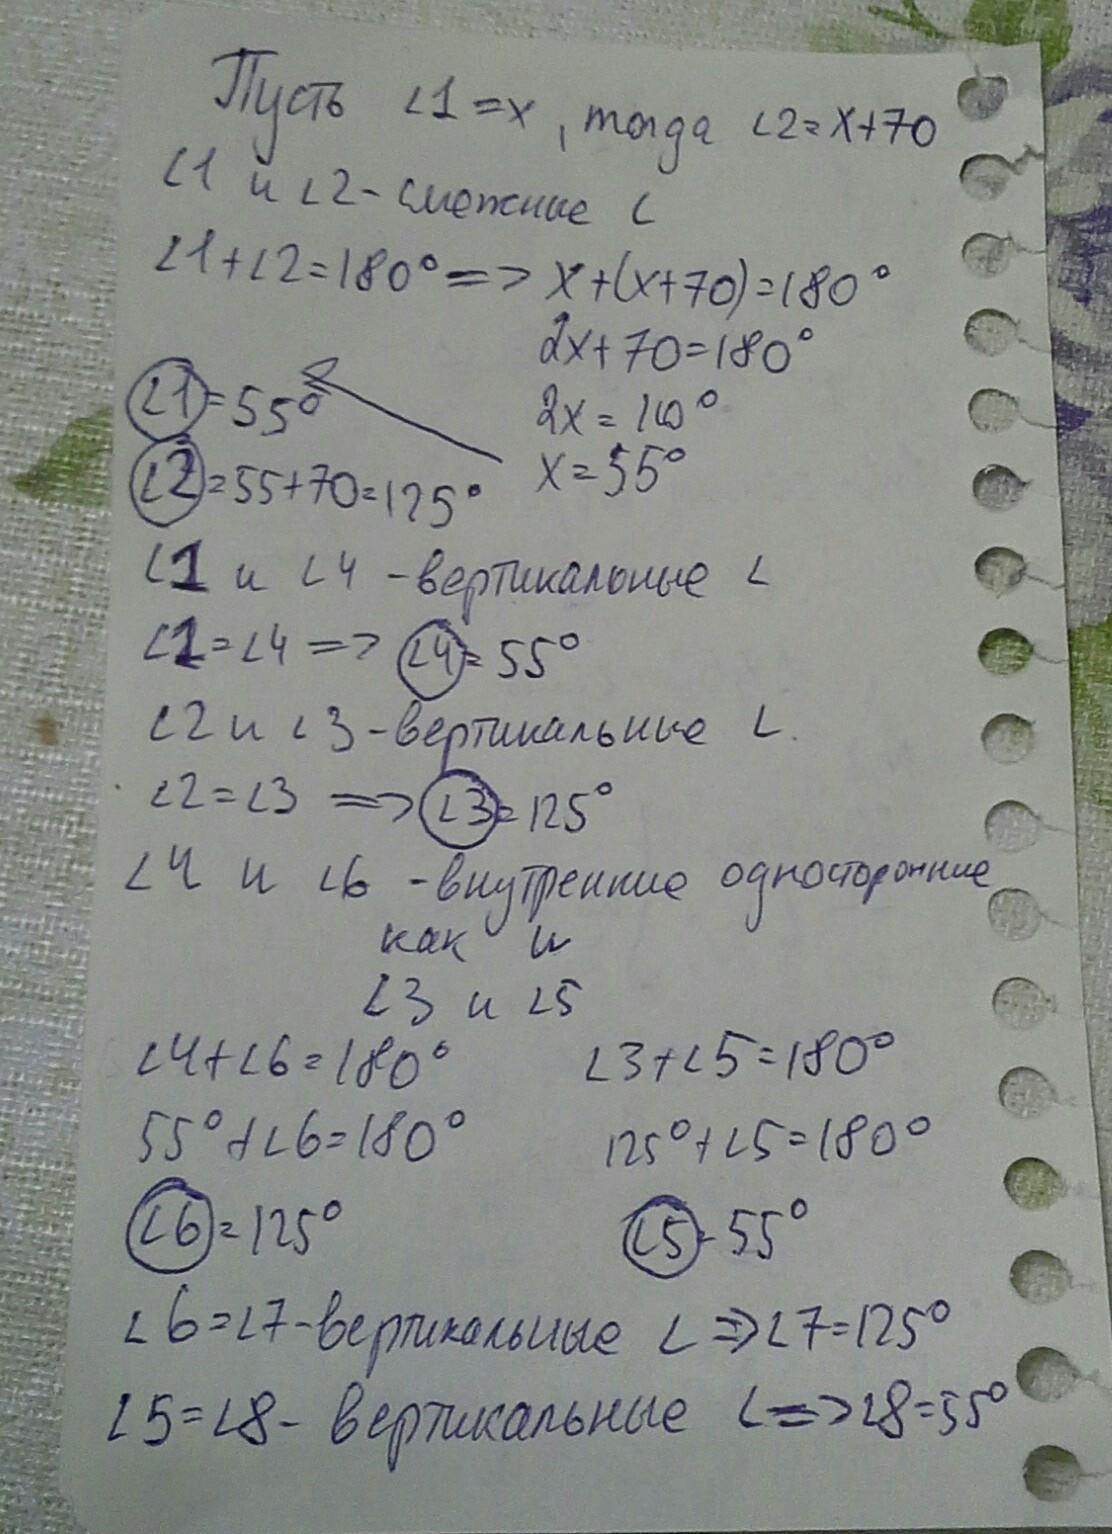 Пусть ∠1=x, тогда ∠2=x+70
∠1 и ∠2-смежные ∠
∠1+∠2=180°=> x+(x+70)=180°
2x+70=180°
∠1=55°
2x=110°
∠2=55+70=125°
x=55°
∠1 и ∠4-вертикальные ∠
∠1=∠4=>∠4=55°
∠2 и ∠3-вертикальные ∠.
∠2=∠3=>∠3=125°
∠4 и ∠6-внутренние односторонние
как и
∠3 и ∠5
∠4+∠6=180° ∠3+∠5=180°
55°+∠6=180° 125°+∠5=180°
∠6=125° ∠5-55°
∠6=∠7-вертикальные ∠=>∠7=125°
∠5=∠8-вертикальные ∠=>∠8=55°